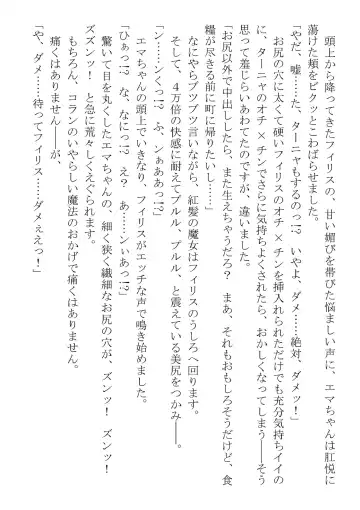 頭上から降ってきたフィリスの、甘い媚びを帯びた悩ましい声に、エマちゃんは肛悦に
蕩けた頬をビクッとこわばらせました。
「やだ、嘘……た、ターニャもするのっ!?　いやよ、ダメ……絶対、ダメッ！」
　お尻の穴に太くて硬いフィリスのオチ×チンを挿入れられただけでも充分気持ちイイの
に、ターニャのオチ×チンでさらに気持ちよくされたら、おかしくなってしまう――そう
思って羞じらいあわてたのですが、違いました。
「お尻以外で中出ししたら、また生えちゃうだろ？　まあ、それもおもしろそうだけど、食
糧が尽きる前に町に帰りたいし……」
　なにやらブツブツ言いながら、紅髪の魔女はフィリスのうしろへ回ります。
　そして、４万倍の快感に耐えてブルル、プルル、と震えている美尻をつかみ――。
「ン……ンくっ!?　ぷ、ンぁああっ!?」
「ひぁっ!?　な、なにっ!?　え？　あ……ンぃあっ!?」
　エマちゃんの頭上でいきなり、フィリスがエッチな声で鳴き始めました。
　驚いて目を丸くしたエマちゃんの、細く狭く繊細なお尻の穴が、ズンッ！　ズンッ！
ズズンッ！　と急に荒々しくえぐられます。
　もちろん、コランのいやらしい魔法のおかげで痛くはありません。
　痛くはありません――が、
「や、ダメ……待ってフィリス……ダメぇえっ！」